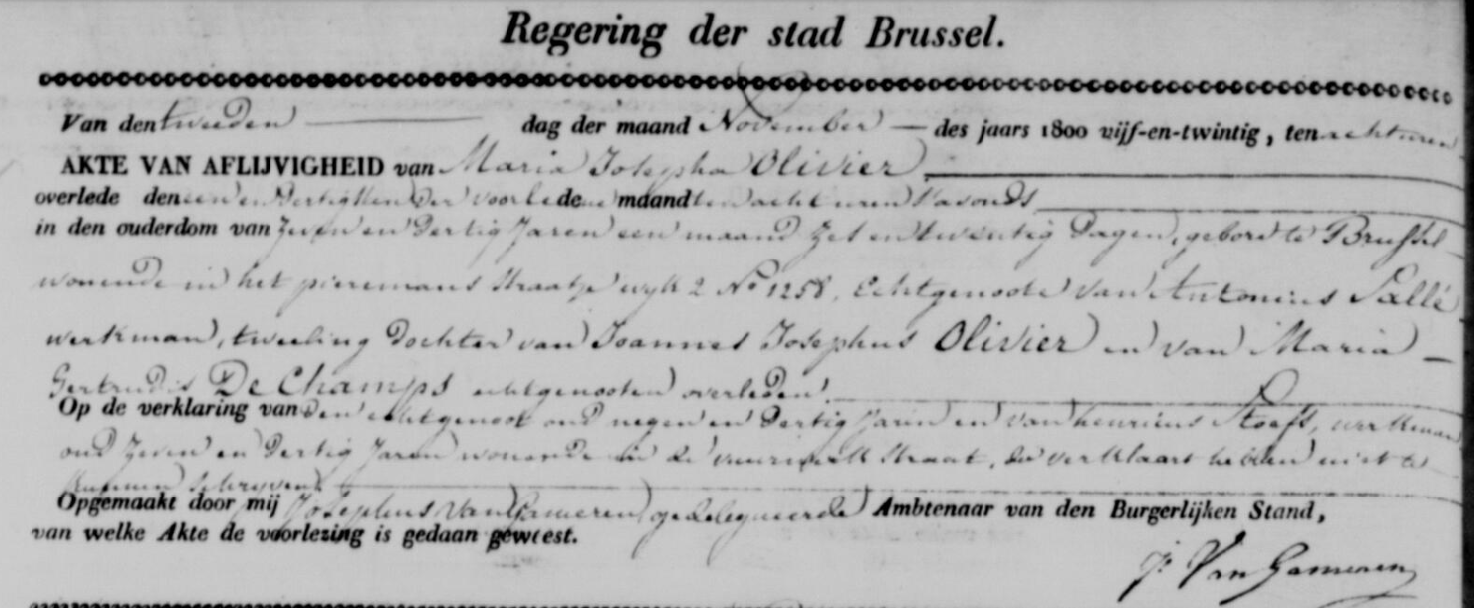 Regering der stad Brussel.
Van den tweeden dag der maand November des jaars 1800 vijf-en-twintig, ten acht uren
AKTE VAN AFLIJVIGHEID van Maria Josepha Olivier
overlede den een en dertigsten der voorledene maand ten acht uren s'avonds
in den ouderdom van zeven en dertig Jaren een maand zes en twintig dagen, gebore te Brussel
wonende in het pieremans straatje wyk 2 No 1258, Echtgenoote van Antonius Sallé
werkman, tweeling dochter van Joannes Josephus Olivier en van Maria
Gertrudis De Champs echtgenooten overleden.
Op de verklaring van den echtgenoot oud negen en dertig jaren en van henricus, werkman
oud zeven en dertig Jaren wonende in de straat, die verklaart hebben niet te
kunnen schryven
Opgemaakt door mij Josephus Van Gameren, gedelegueerde Ambtenaar van den Burgerlijken Stand,
van welke Akte de voorlezing is gedaan geweest.
J. Van Gameren